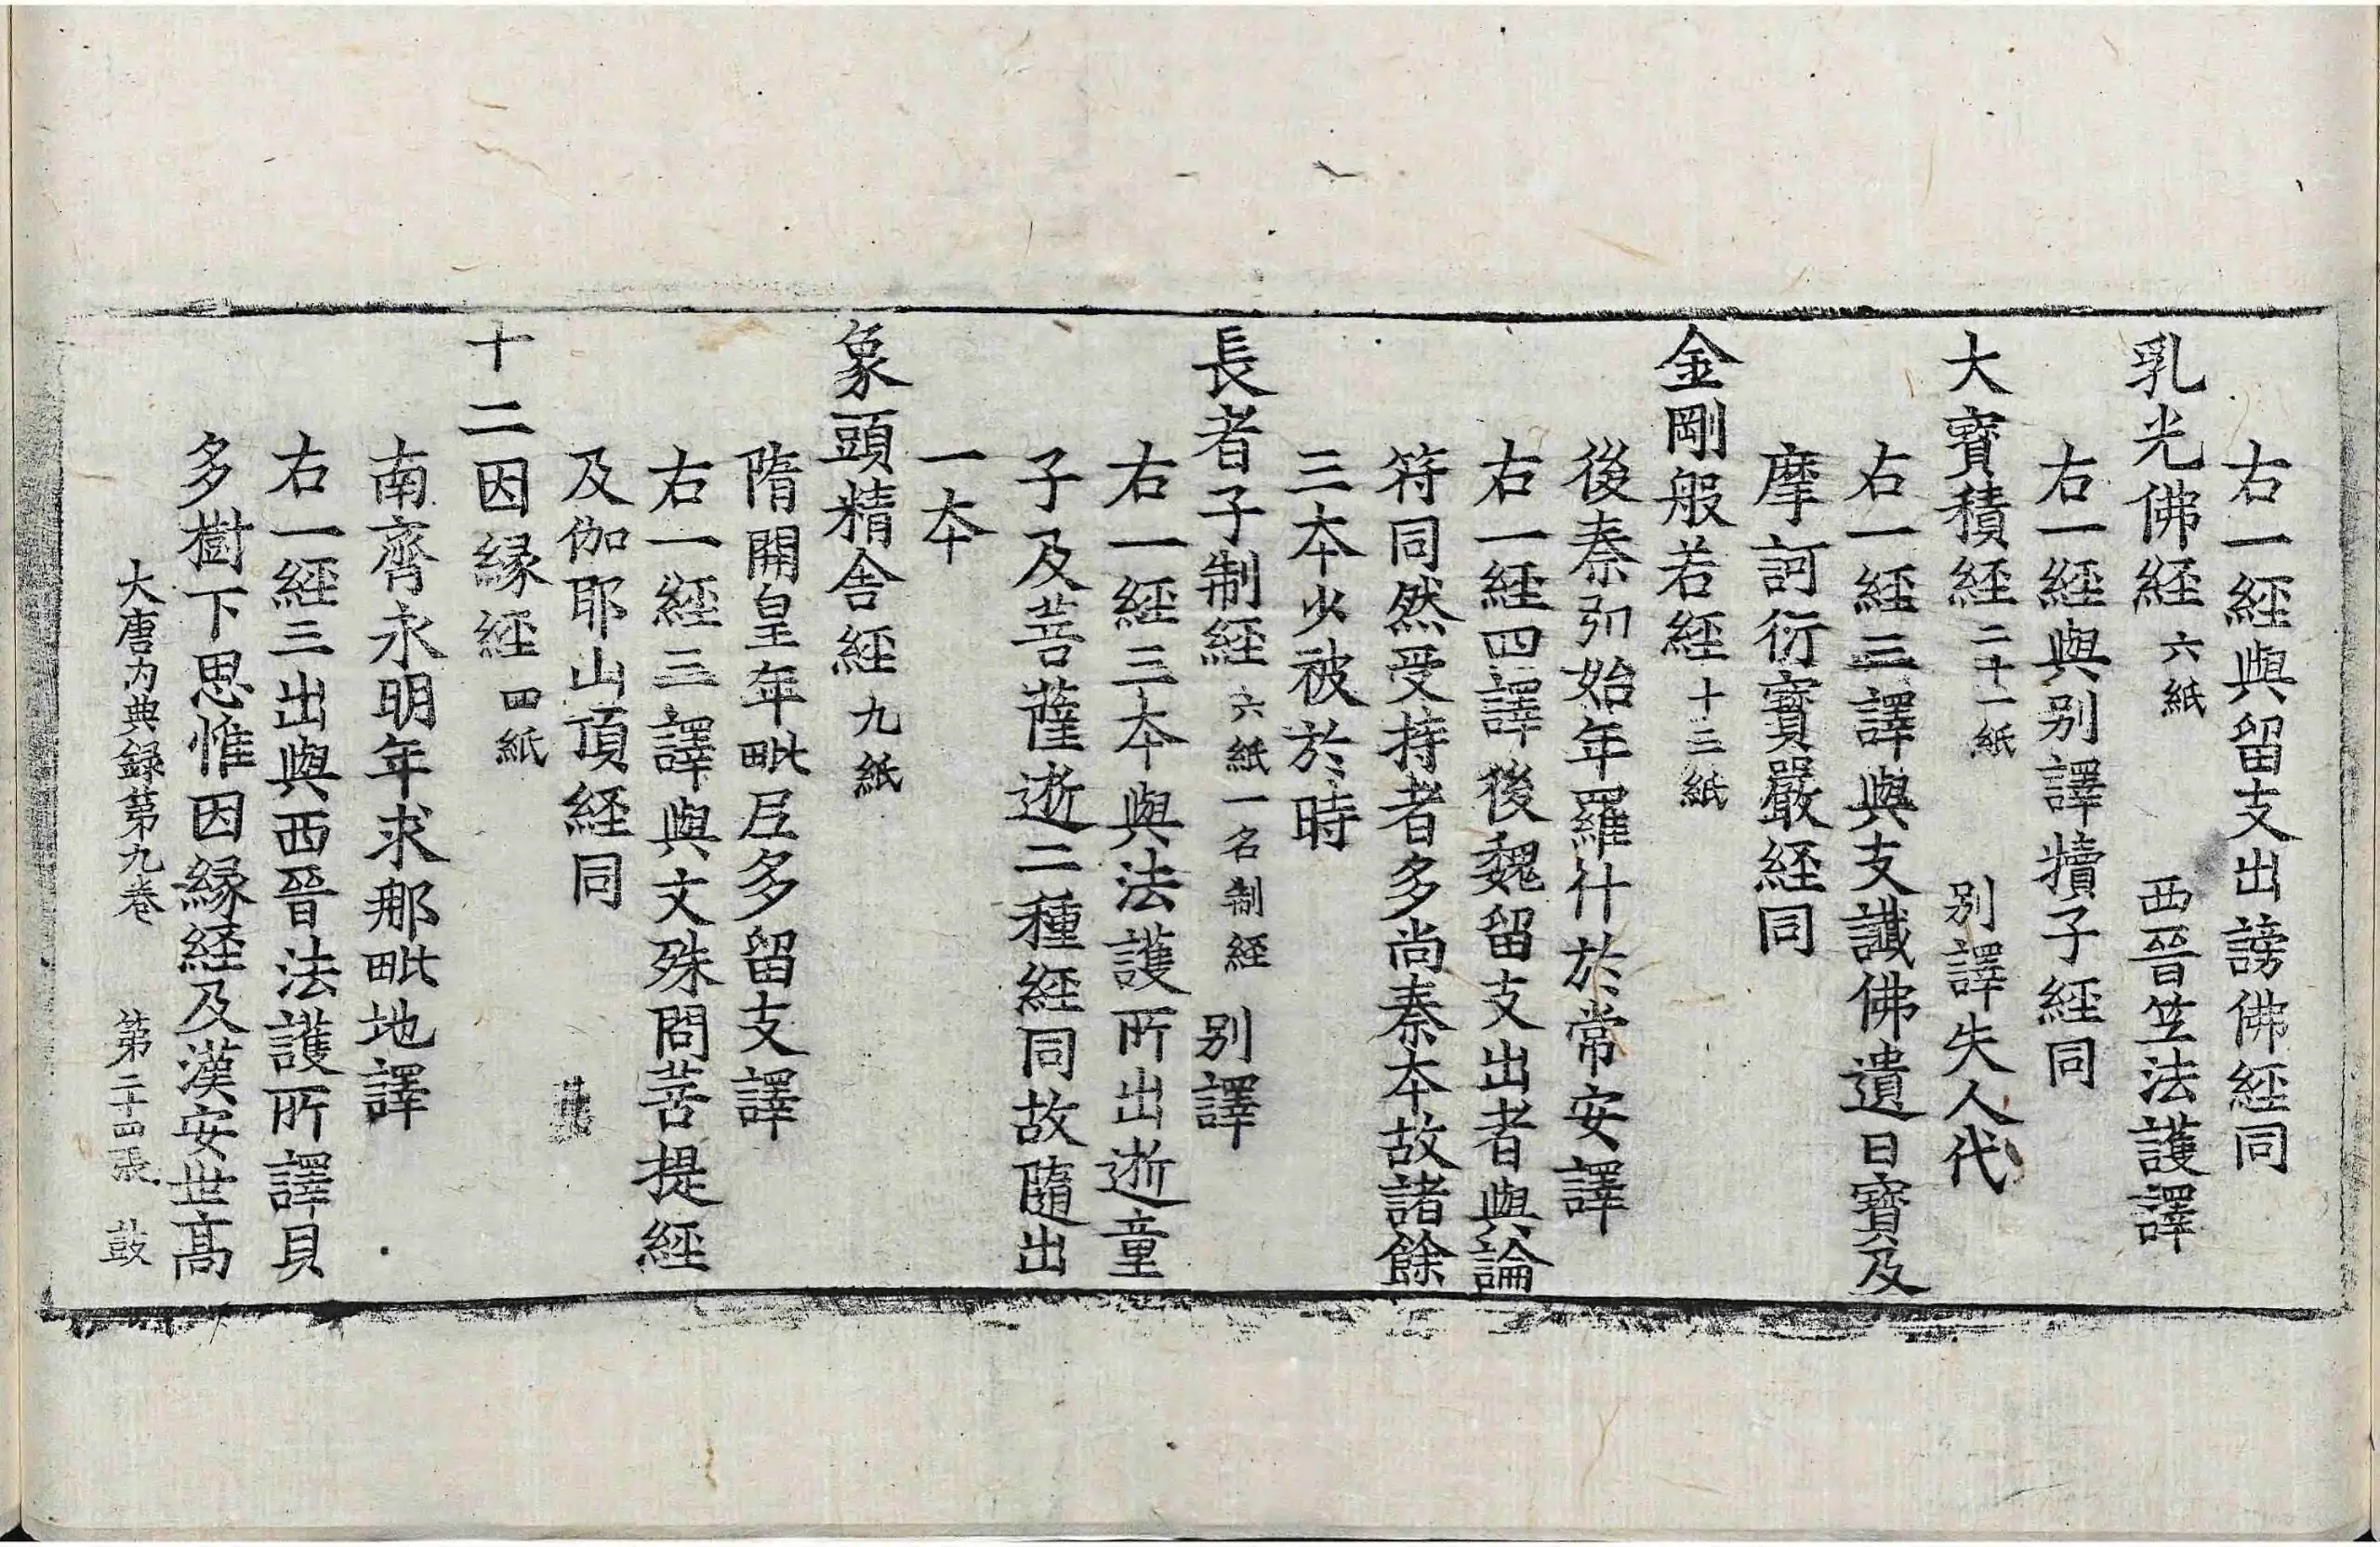 右一經與留支出謗佛經同
乳光佛經 六紙 西晉笁法護譯
右一經與别譯犢子經同
大寶積經 二十一紙 别譯失人代
右一經三譯與支讖佛遺日寶及
摩訶衍寶嚴經同
金剛般若經 十三紙
後秦弘始年羅什於常安譯
右一經四譯後魏留支出者與論
符同然受持者多尚秦本故諸餘
三本少被於時
長者子制經 六紙一名制經 别譯
右一經三本與法護所出逝童
子及菩薩逝二種經同故隨出
一本
象頭精舍經 九紙
隋開皇年毗尼多留支譯
右一經三譯與文殊問菩提經
及伽耶山頂經同
十二因縁經 四紙
南齊永明年求那毗地譯
右一經三出與西晉法護所譯貝
多樹下思惟因縁經及漢安世髙
大唐内典録第九卷 第二十四張 鼓